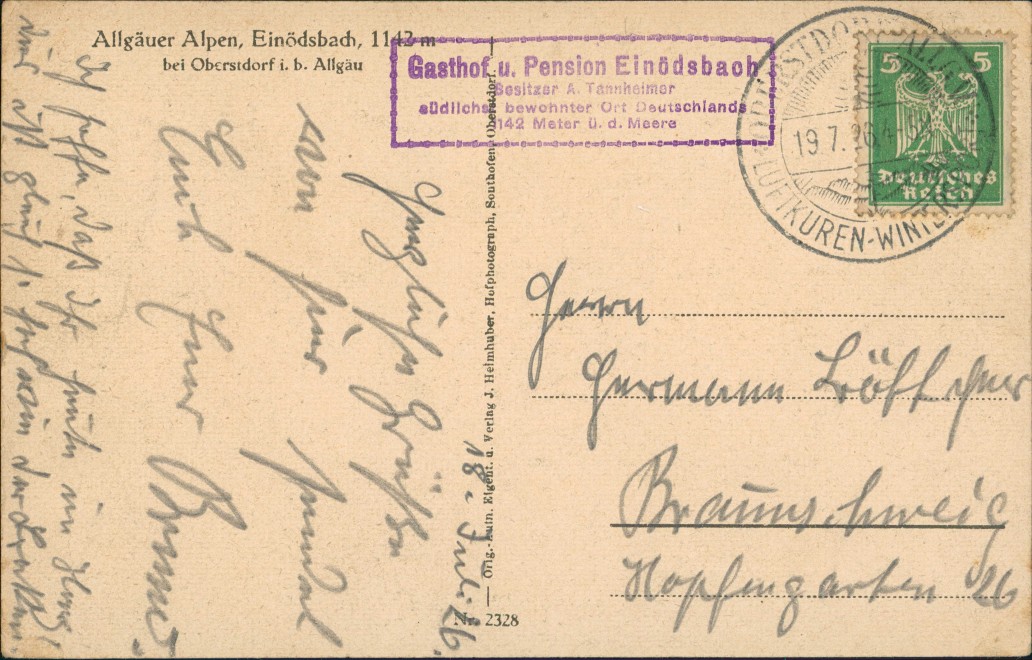 Allgäuer Alpen, Einödsbach, 1142 m
bei Oberstdorf i. b. Allgäu
Gasthof u. Pension Einödsbach
Besitzer A. Tannheimer
südlichst bewohnter Ort Deutschlands
1142 Meter ü. d. Meere
OBERSTDORF ALLGÄU
19.7.26
LUFTKUREN-WINTER
5 5
Deutsches
Reich
18. Juli 26.
Herzliche Grüße
von hier sendet
Euch Euer
Ich hoffe, daß Ihr heute in
und
Orig.-Aufn. Eigent. u. Verlag J. Heimhuber, Hofphotograph, Sonthofen, Oberstdorf.
Nr. 2328
Herrn
Hermann Löffler
Braunschweig
Hopfengarten 26